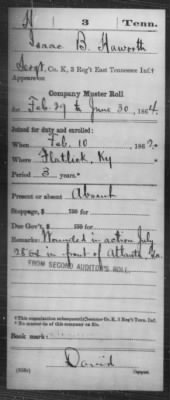 H | 3 | Tenn.
Isaac B. Haworth
Sergt., Co. K, 3 Reg't East Tennessee Inf.†
Appears on
Company Muster Roll
for Feb. 29 to June 30, 1864.
Joined for duty and enrolled:
When Feb. 10, 1862.*
Where Flatlick, Ky
Period 3 years.*
Present or absent Absent
Stoppage, $ 100 for
Due Gov't, $ 100 for
Remarks: Wounded in action July
28. 64 in front of Atlanta Ga.
FROM SECOND AUDITOR'S ROLL.
† This organization subsequently became Co. K, 3 Reg't Tenn. Inf.
Book mark:
David
(858c) Copyist.